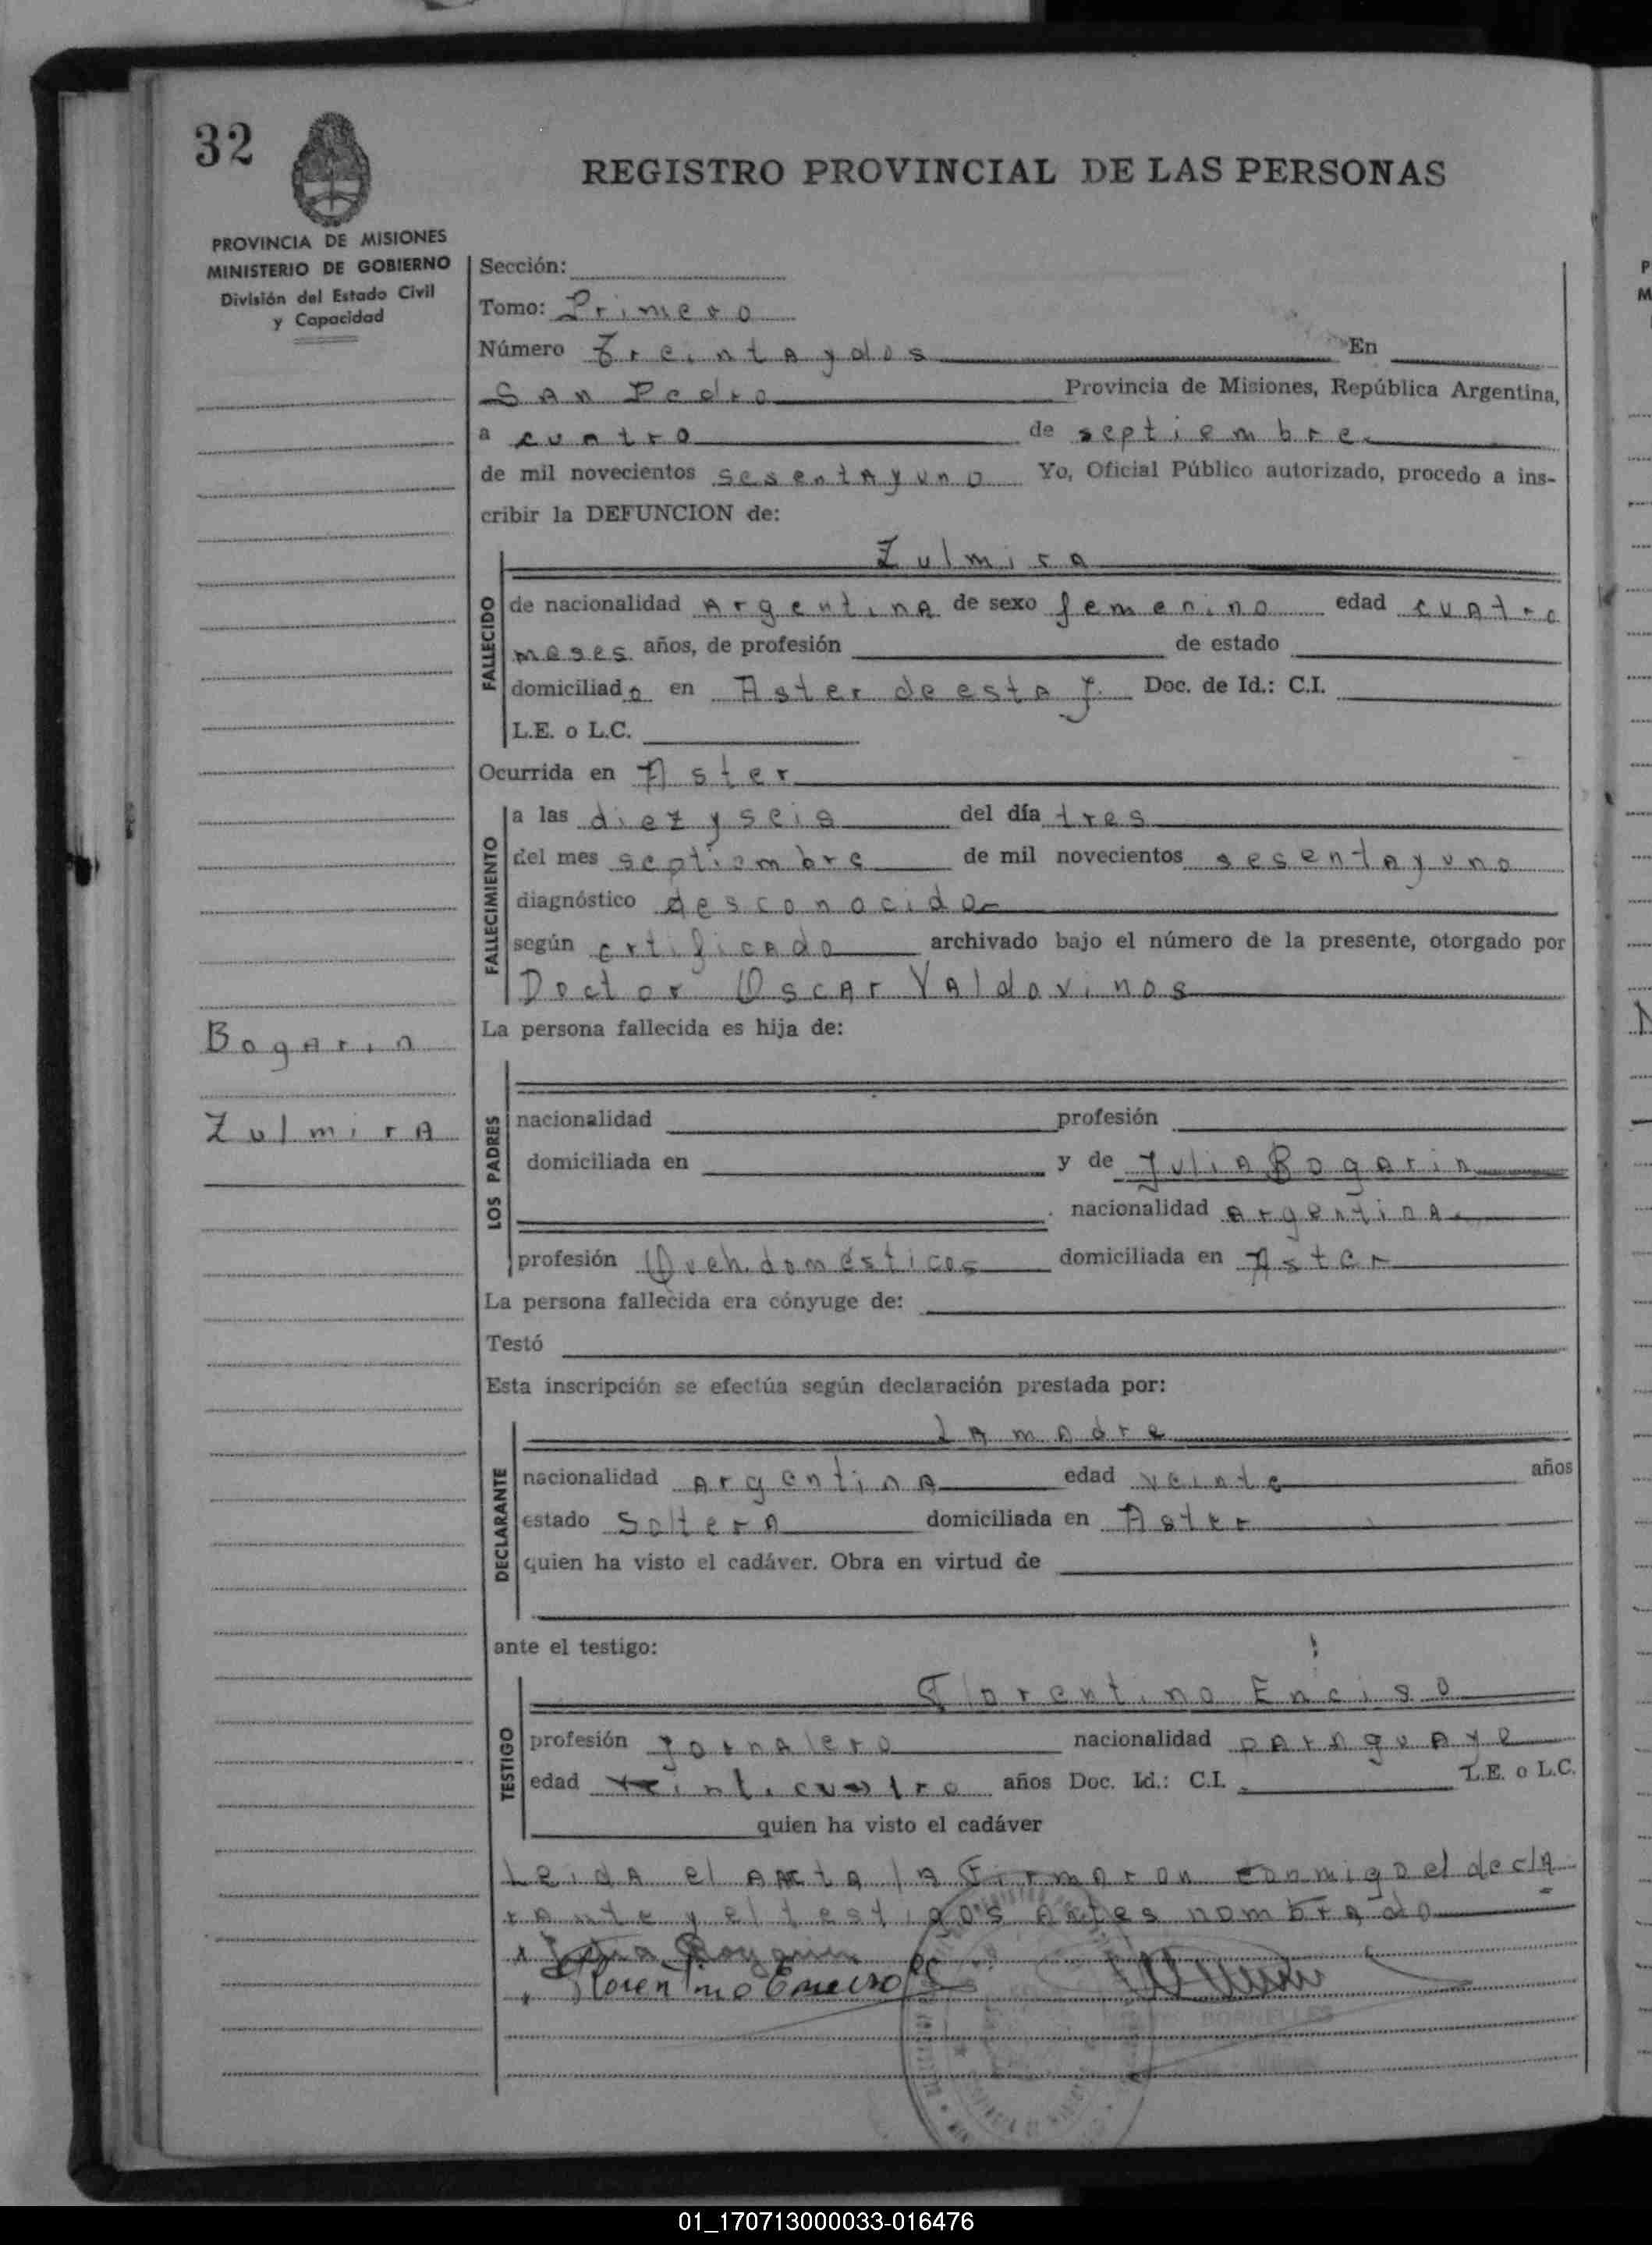 32
REGISTRO PROVINCIAL DE LAS PERSONAS
PROVINCIA DE MISIONES
MINISTERIO DE GOBIERNO
División del Estado Civil
y Capacidad
Sección:
Tomo: Primero
Número Treinta y dos En
San Pedro Provincia de Misiones, República Argentina,
a cuatro de septiembre
de mil novecientos sesenta y uno Yo, Oficial Público autorizado, procedo a ins-
cribir la DEFUNCION de:
Zulmira
FALLECIDO
de nacionalidad Argentina de sexo femenino edad cuatro
meses años, de profesión de estado
domiciliado en Aster de esta J. Doc. de Id.: C.I.
L.E. o L.C.
Ocurrida en Aster
FALLECIMIENTO
a las diez y seis del día tres
del mes septiembre de mil novecientos sesenta y uno
diagnóstico desconocido
según crtificado archivado bajo el número de la presente, otorgado por
Doctor Oscar Valdovinos
La persona fallecida es hija de:
Bogarin
Zulmira
LOS PADRES
nacionalidad profesión
domiciliada en y de Julia Bogarin
nacionalidad argentina
profesión Queh. domésticos domiciliada en Aster
La persona fallecida era cónyuge de:
Testó
Esta inscripción se efectúa según declaración prestada por:
DECLARANTE
La madre
nacionalidad argentina edad veinte años
estado Soltera domiciliada en Aster
quien ha visto el cadáver. Obra en virtud de
ante el testigo:
TESTIGO
Florentino Enciso
profesión jornalero nacionalidad paraguaye
edad veinticuatro años Doc. Id.: C.I. L.E. o L.C.
quien ha visto el cadáver
Leida el acta la firmaron conmigo el decla
rante y el testigos antes nombrado
Julia Bogarin
Florentino Enciso
01_170713000033-016476